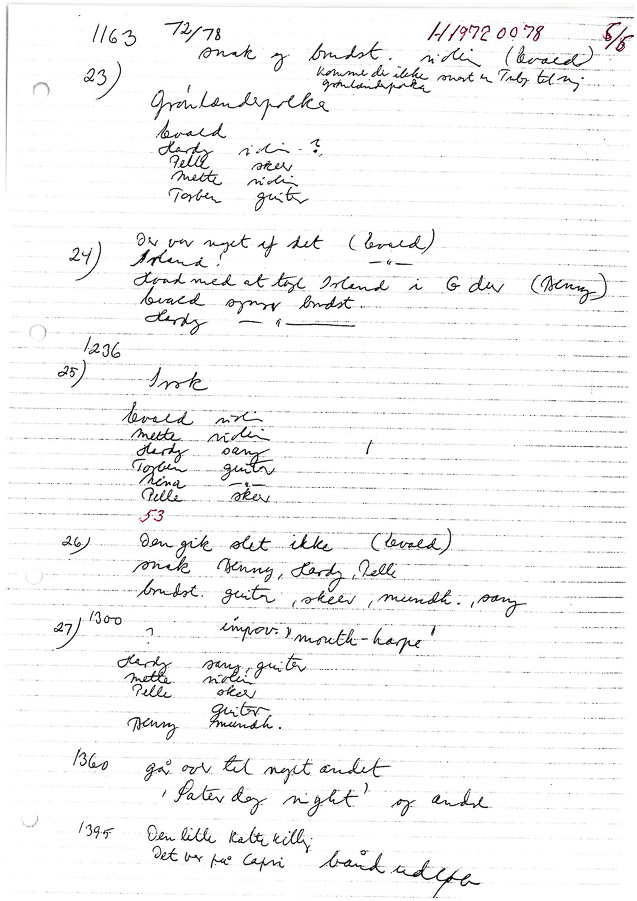 1163 72/78 H1972 0078 5/5
snak og brudst. violin (Evald)
23) Komme de ikke snart en Tuby til mig
Grønlænderpolka
Grønlænderpolka
Evald
Hardy violin ?
Pelle skeer
Mette violin
Torben guitar
24) Der var noget af det (Evald)
Irland! — " —
Hvad med at tage Irland i G dur (Benny)
Evald synger brudst.
Hardy — " —
1236
25) Irsk
Evald violin
Mette violin
Hardy sang
Torben guitar
Nina — " —
Pelle skeer
53
26) Den gik slet ikke (Evald)
snak Benny, Hardy, Pelle
brudst. guitar, skeer, mundh., sang
27) 1300 ? improv. "mouth-harpe"
Hardy sang, guitar
Mette violin
Pelle skeer
guitar
Benny mundh.
1360 går over til noget andet
'Saterday night' og andre
1395 Den lille Kattekilling
Det var på Capri bånd udløb